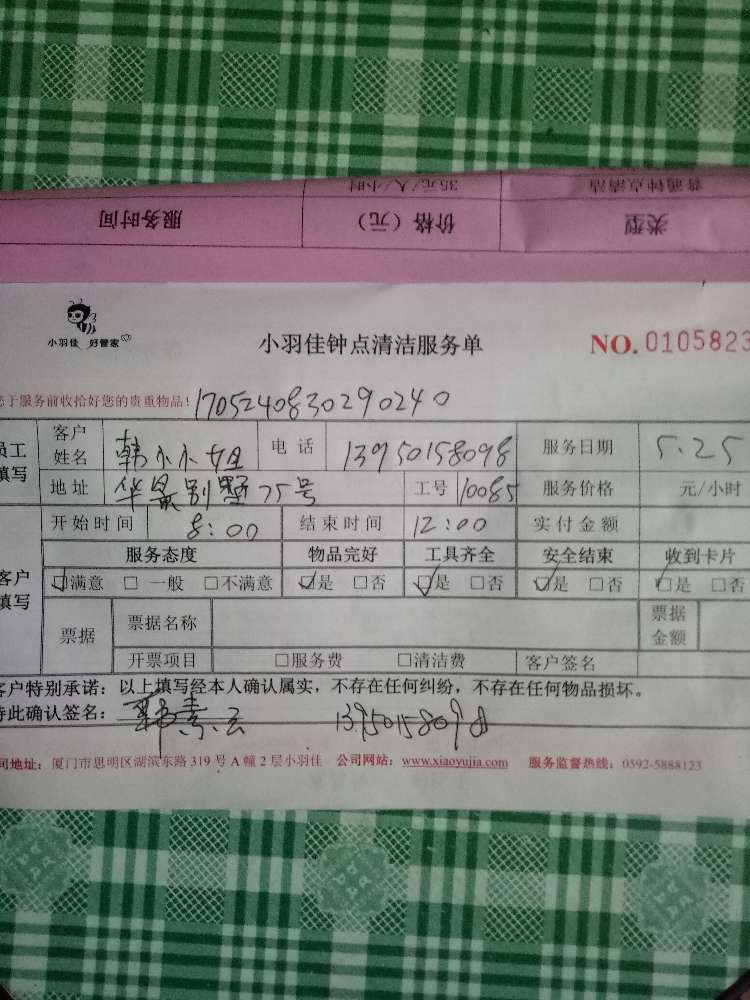 普通钟点清洁 35元/人/小时
类型 价格（元） 服务时间
小羽佳 好管家
小羽佳钟点清洁服务单 NO. 0105823
于服务前收拾好您的贵重物品！ 1705240830290240
员工填写 客户姓名 韩小小姐 电话 13950158098 服务日期 5.25
地址 华景别墅75号 工号 10085 服务价格 元/小时
客户填写 开始时间 8:00 结束时间 12:00 实付金额
服务态度 物品完好 工具齐全 安全结束 收到卡片
☑满意 □一般 □不满意 ☑是 □否 ☑是 □否 ☑是 □否 ☑是 □否
票据 票据名称 票据金额
开票项目 □服务费 □清洁费 客户签名
客户特别承诺：以上填写经本人确认属实，不存在任何纠纷，不存在任何物品损坏。
此确认签名： 13950158098
司地址：厦门市思明区湖滨东路319号A幢2层小羽佳 公司网站：www.xiaoyujia.com 服务监督热线：0592-5888123